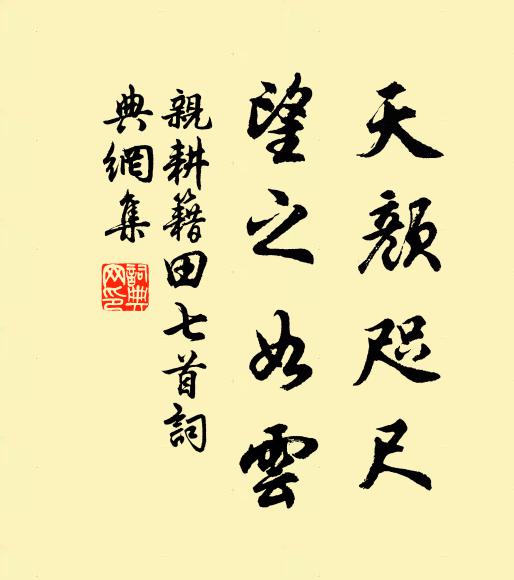 天顏咫尺
望之如雲
親耕籍田七首詞
典網集
詞典網印